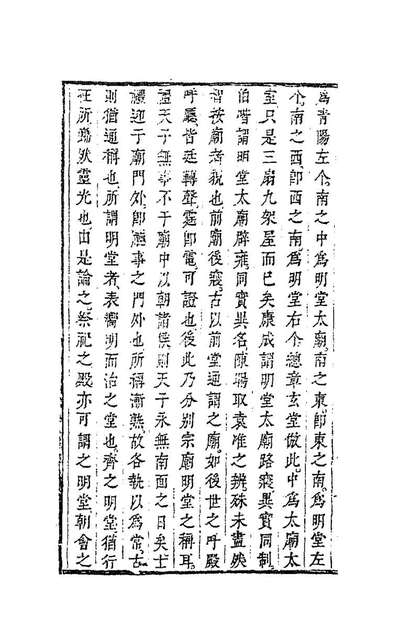 為青陽左个南之中為明堂太廟南之東即東之南為明堂左
个南之西即西之南為明堂右个總章玄堂倣此中為太廟太
室只是三扇九架屋而已矣康成謂明堂太廟路寢異實同制
伯喈謂明堂太廟辟雍同實異名陳暘取袁准之辨殊未盡然
嘗按廟者貌也前廟後寢古以前堂通謂之廟如後世之呼殿
呼廳皆廷轉聲霆即電可證也後此乃分別宗廟明堂之稱耳
謂天子無事不于廟中以朝諸侯則天子永無南面之日矣士
禮迎于廟門外即聽事之門外也所稱漸熟故各執以為常古
則猶通稱也所謂明堂者表獨明而治之堂也齊之明堂猶行
在所巋然靈光也由是論之祭祀之殿亦可謂之明堂朝會之